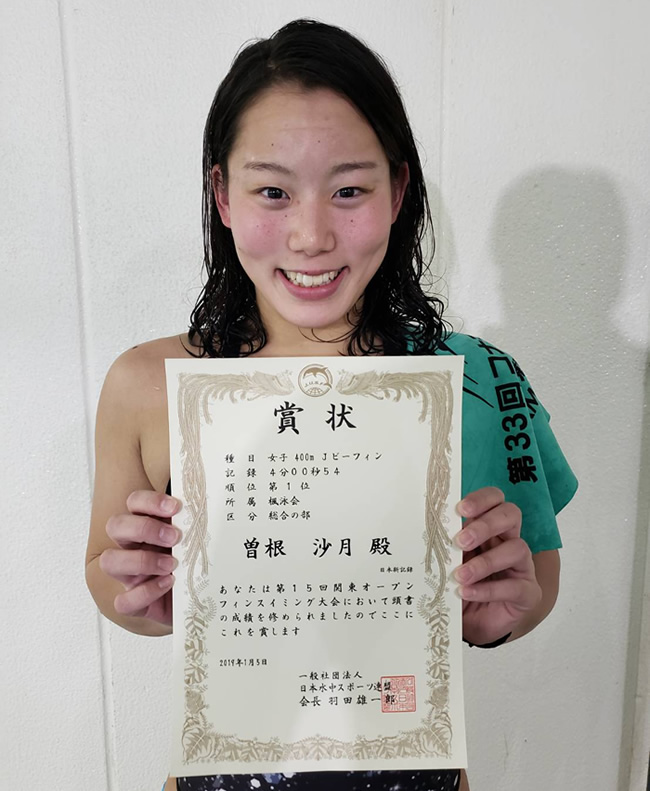 賞状
種目 女子 400m Jビーフィン
記録 4分00秒54
順位 第1位
所属 楓泳会
区分 総合の部
曽根 沙月 殿
日本新記録
あなたは第15回関東オープン
フィンスイミング大会において頭書
の成績を修められましたのでここに
これを賞します
2019年1月5日
一般社団法人
日本水中スポーツ連盟
会長 羽田雄一郎
第33回